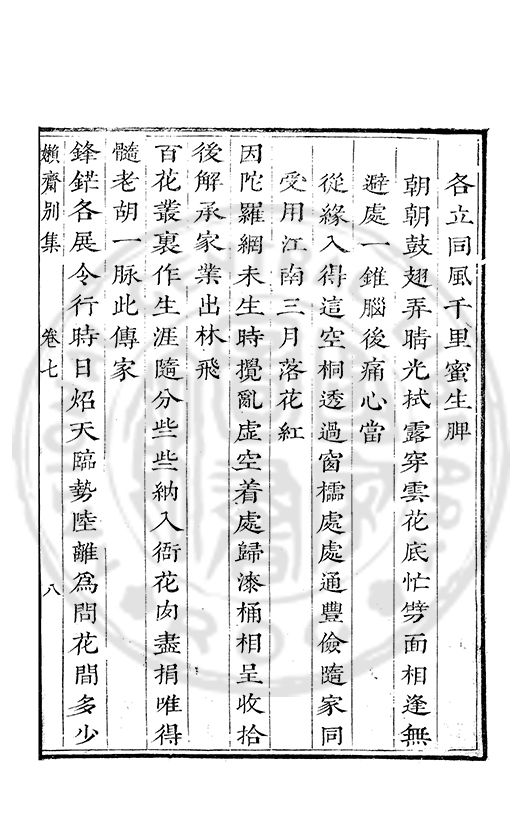 各立同風千里蜜生脾
朝朝鼓翅弄晴光拭露穿雲花底忙劈面相逢無
避處一錐腦後痛心當
從緣入得這空桐透過窗櫺處處通豐儉隨家同
受用江南三月落花紅
因陀羅網未生時攪亂虛空着處歸漆桶相呈收拾
後解承家業出林飛
百花叢裏作生涯隨分些些納入衙花肉盡捐唯得
髓老胡一脉此傳家
鋒鋩各展令行時日炤天臨勢陸離為問花間多少
嬾齋別集 卷七 八